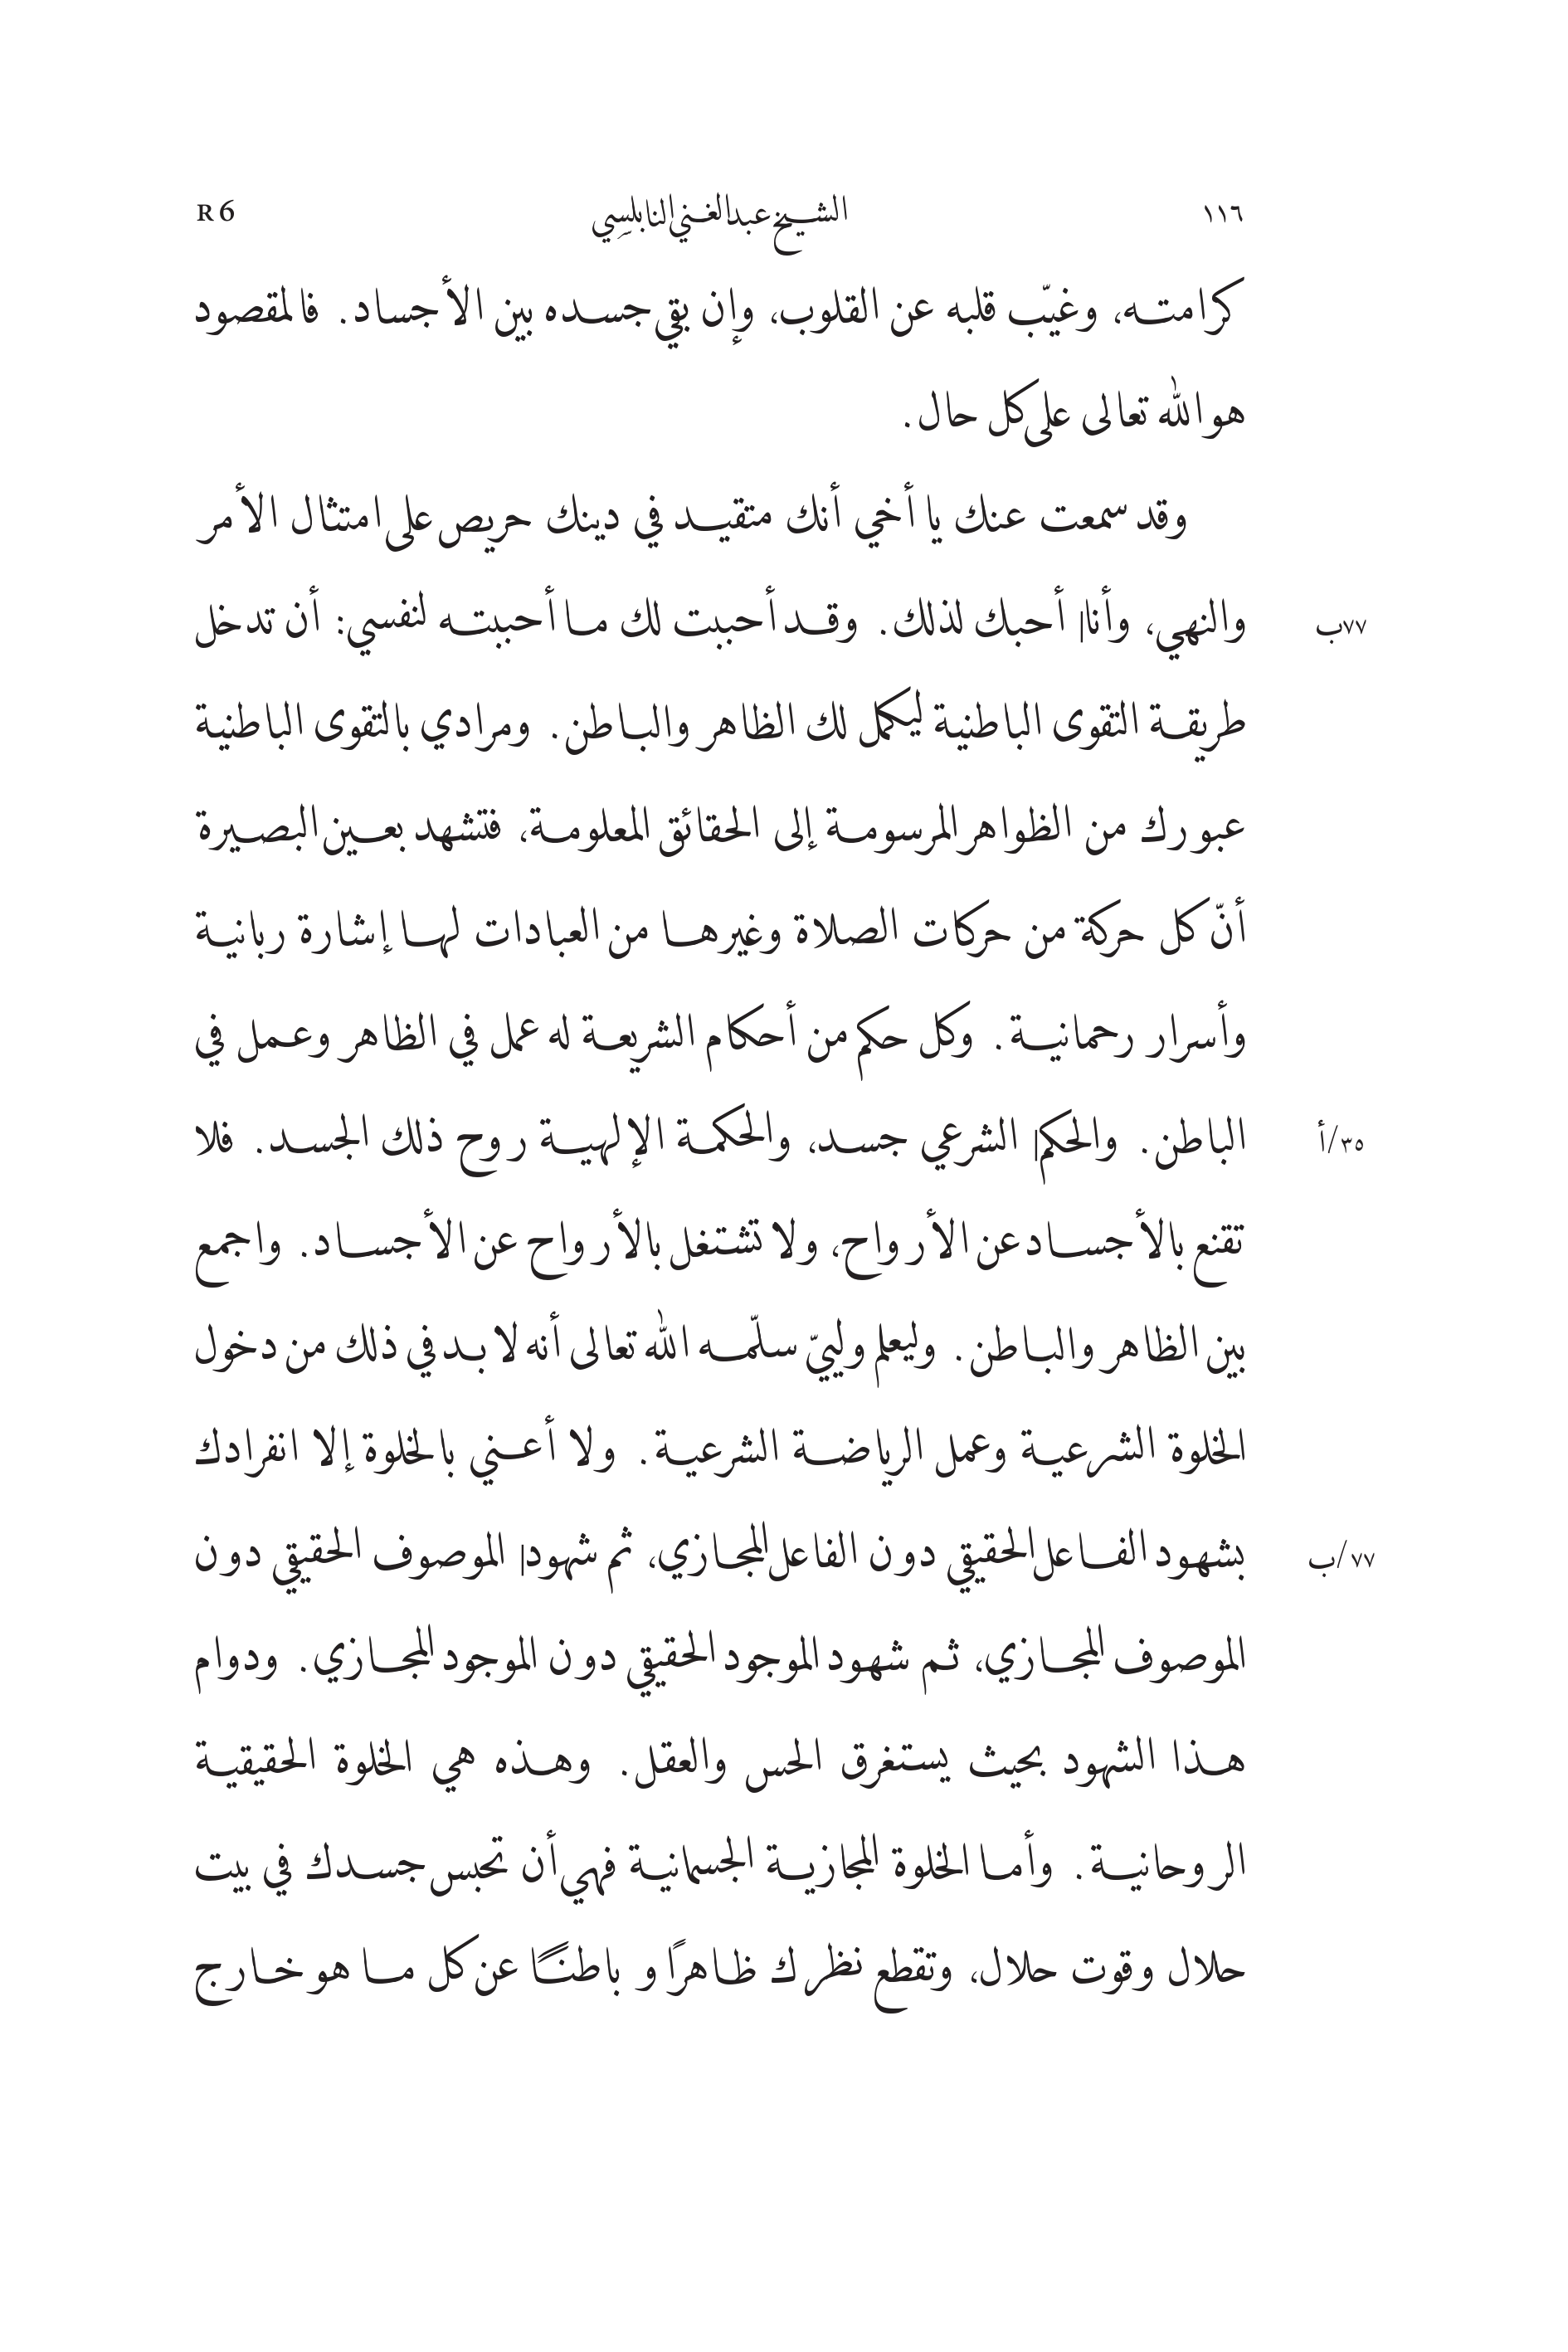 ١١٦ الشيخ عبد الغني النابلسي R 6
كرامته، وغيّب قلبه عن القلوب، وإن بقي جسده بين الأجساد. فالمقصود
هو الله تعالى على كل حال.
وقد سمعت عنك يا أخي أنك متقيد في دينك حريص على امتثال الأمر
والنهي، وأنا| أحبك لذلك. وقد أحببت لك ما أحببته لنفسي: أن تدخل ٧٧ب
طريقة التقوى الباطنية ليكمل لك الظاهر والباطن. ومرادي بالتقوى الباطنية
عبورك من الظواهر المرسومة إلى الحقائق المعلومة، فتشهد بعين البصيرة
أنّ كل حركة من حركات الصلاة وغيرها من العبادات لها إشارة ربانية
وأسرار رحمانية. وكل حكم من أحكام الشريعة له عمل في الظاهر وعمل في
الباطن. والحكم| الشرعي جسد، والحكمة الإلهية روح ذلك الجسد. فلا ٣٥/أ
تقنع بالأجساد عن الأرواح، ولا تشتغل بالأرواح عن الأجساد. واجمع
بين الظاهر والباطن. وليعلم ولييّ سلّمه الله تعالى أنه لا بد في ذلك من دخول
الخلوة الشرعية وعمل الرياضة الشرعية. ولا أعني بالخلوة إلا انفرادك
بشهود الفاعل الحقيقي دون الفاعل المجازي، ثم شهود| الموصوف الحقيقي دون ٧٧/ب
الموصوف المجازي، ثم شهود الموجود الحقيقي دون الموجود المجازي. ودوام
هذا الشهود بحيث يستغرق الحس والعقل. وهذه هي الخلوة الحقيقية
الروحانية. وأما الخلوة المجازية الجسمانية فهي أن تحبس جسدك في بيت
حلال وقوت حلال، وتقطع نظرك ظاهرًا و باطنًا عن كل ما هو خارج